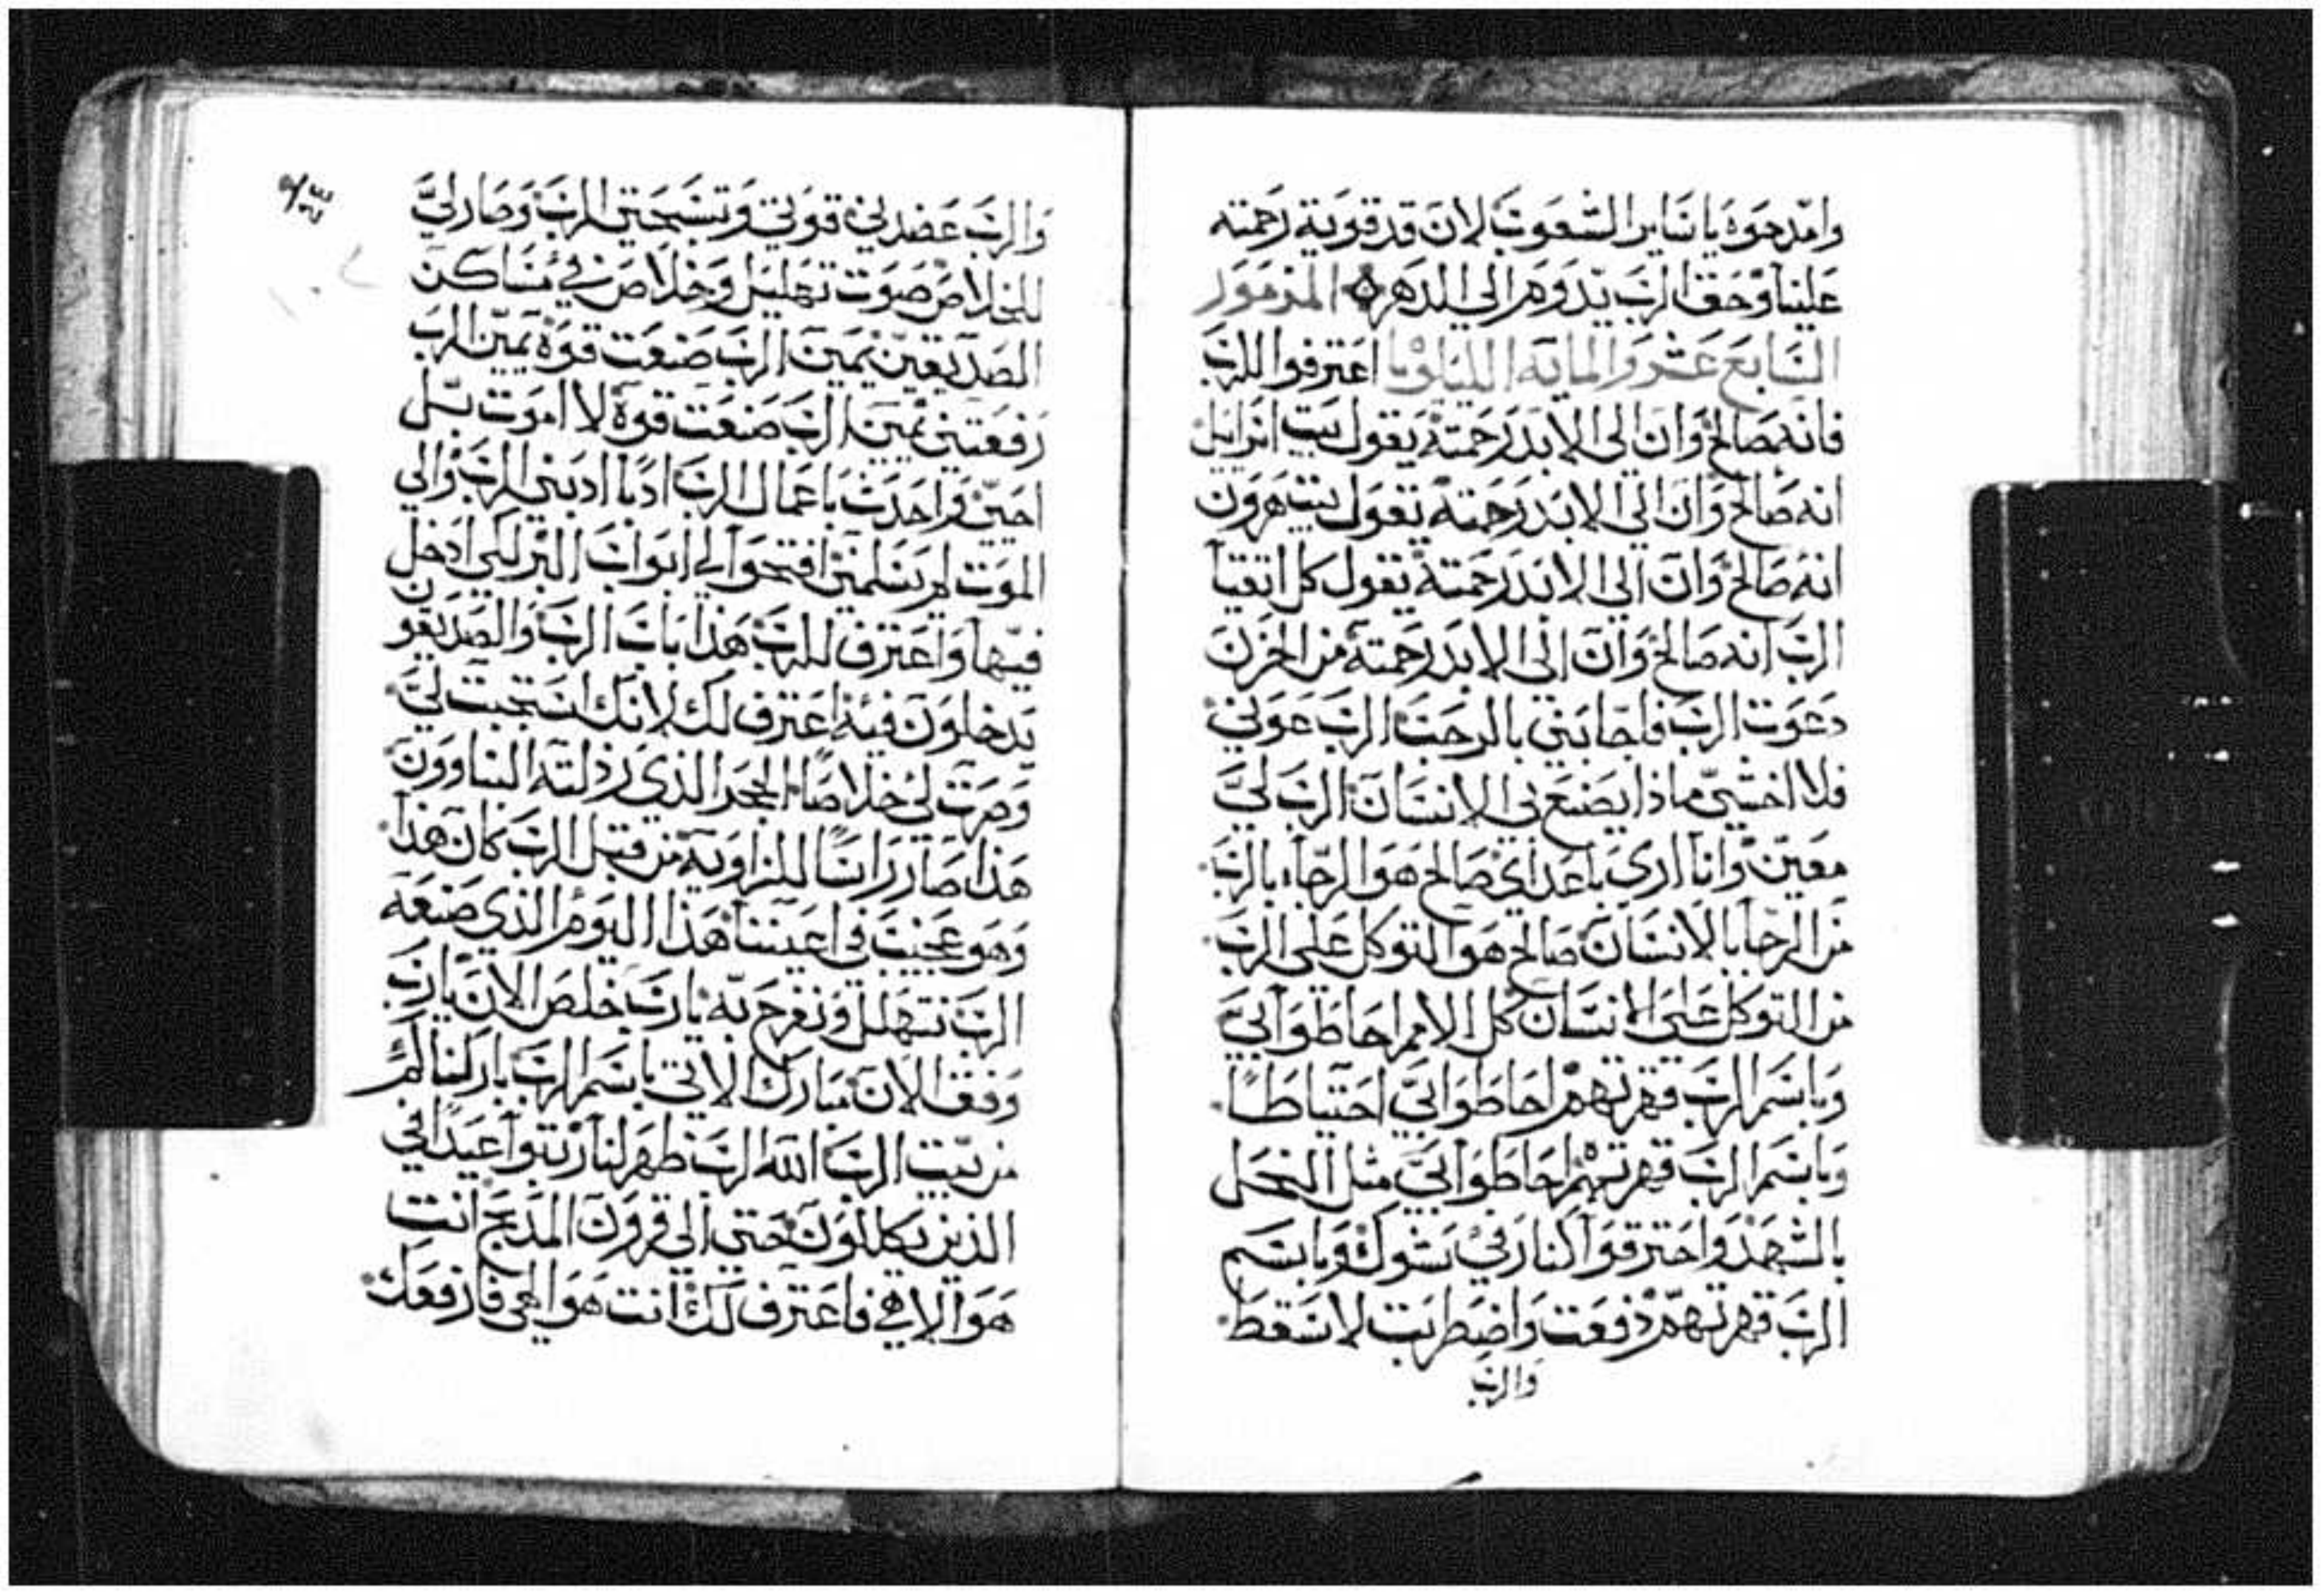 وامدحوه يا ساير الشعوب لان قد قوية رحمته
علينا وحق الرب يدوم الى الدهر المزمور
السابع عشر والمايه الليلويا اعترفوا للرب
فانه صالح وان الى الابد رحمته يقول بيت اسرايل
انه صالح وان الى الابد رحمته يقول بيت هرون
انه صالح وان الى الابد رحمته يقول كل اتقيا
الرب انه صالح وان الى الابد رحمته من الحزن
دعوت الرب فاجابني بالرحب الرب عوني
فلا اخشي ماذا يصنع بي الانسان الرب لي
معين وانا اري باعداي صالح هو الرجاء بالرب
من الرجا بالانسان صالح هو التوكل على الرب
من التوكل على الانسان كل الامم احاطوا بي
وباسم الرب قهرتهم احاطوا بي احتياطا
وباسم الرب قهرتهم احاطوا بي مثل النحل
بالشهد واحترقوا كنار في شوك وباسم
الرب قهرتهم دفعت واضطربت لاسقط
والرب
والرب عضدني قوتي وتسبحتي الرب وصار لي
للخلاص صوت تهليل وخلاص في مساكن
الصديقين يمين الرب صنعت قوة يمين الرب
رفعتني يمين الرب صنعت قوة لا اموت بل
احيي واحدث باعمال الرب ادبا ادبني الرب والى
الموت لم يسلمني افتحوا لي ابواب البر لكي ادخل
فيها واعترف للرب هذا باب الرب والصديقون
يدخلون فيه اعترف لك لانك استجبت لي
وصرت لي خلاصا الحجر الذي رذلته البناوون
هذا صار راسا للزاوية من قبل الرب كان هذا
وهو عجيب في اعيننا هذا اليوم الذي صنعه
الرب نتهلل ونفرح به يا رب خلص الان يا رب
وفق الان مبارك الاتي باسم الرب باركناكم
من بيت الرب الله الرب ظهر لنا رتبوا عيدا في
الذين يكللون حتي الى قرون المذبح انت
هو الاهي فاعترف لك انت هو الهي فارفعك